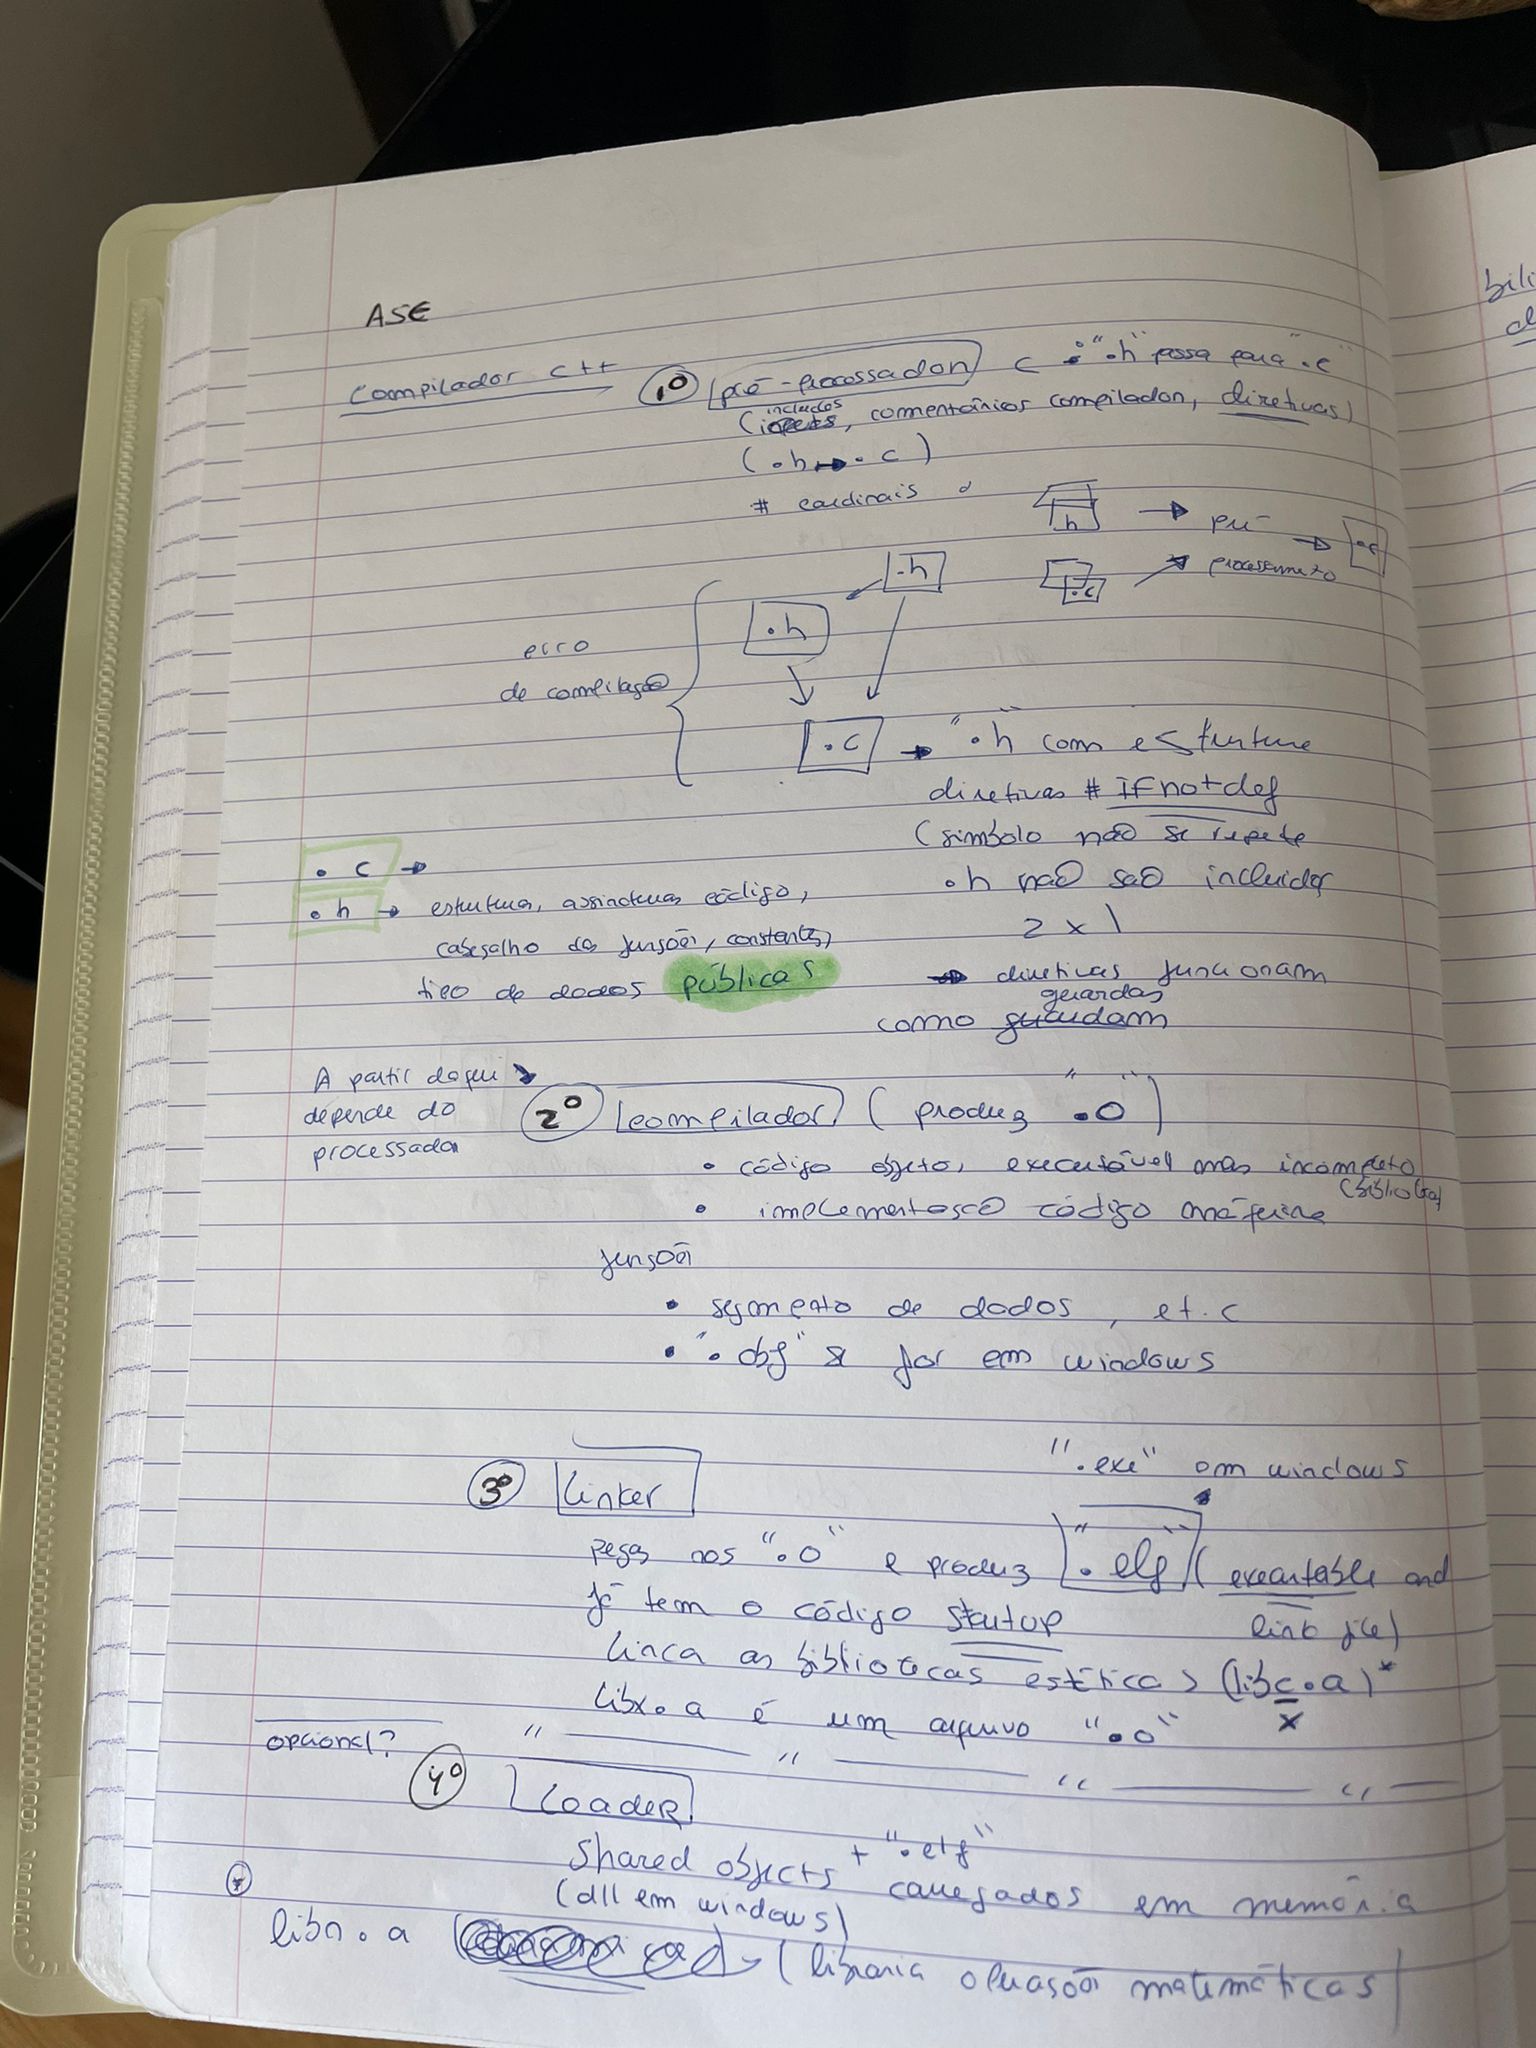 ASE
compilador c++ 1º pré-processador c ".h" passa para ".c"
(includes, comentários compilador, diretivas)
(.h → .c)
# cardinais
h → pré → .c
.c processamento
.h
.h
erro
de compilação
.c → ".h" com estrutura
diretivas # ifnotdef
(simbolo não se repete
.h não são incluidos
2 x )
→ diretivas funcionam
guardas
como guardam
. c →
. h → estrutura, assinaturas código,
cabeçalho das funsões, constantes,
tipo de dados públicas
A partir daqui
depende do
processador
2º compilador ( produz ".o" )
• código objeto, executável mas incompleto
(biblioteca)
• implementasão código máquina
funsões
• segmento de dados, et.c
• ".obj" se for em windows
".exe" em windows
3º linker
pega nos ".o" e produz ".elf" ( executable and
link file)
já tem o código startup
linca as bibliotecas estáticas (libc.a)*
x
libx.a é um arquivo ".o"
" —— " —— " —— " —
opcional?
4º Loader
shared objects + ".elf" carregados em memória
(dll em windows)
*
libn.a (libraria operasões matemáticas)
bili